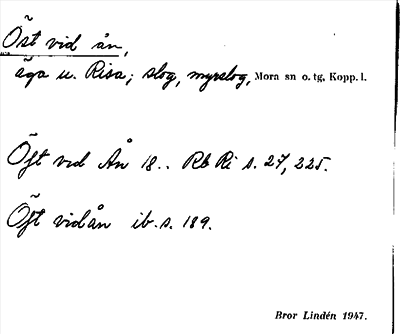 Öst vid ån,
äga u. Risa; slog, myrslog, Mora sn o. tg, Kopp. l.
Öft vid Ån 18.. Rb Ri s. 27, 225.
Öft vid ån ib. s. 189.
Bror Lindén 1947.